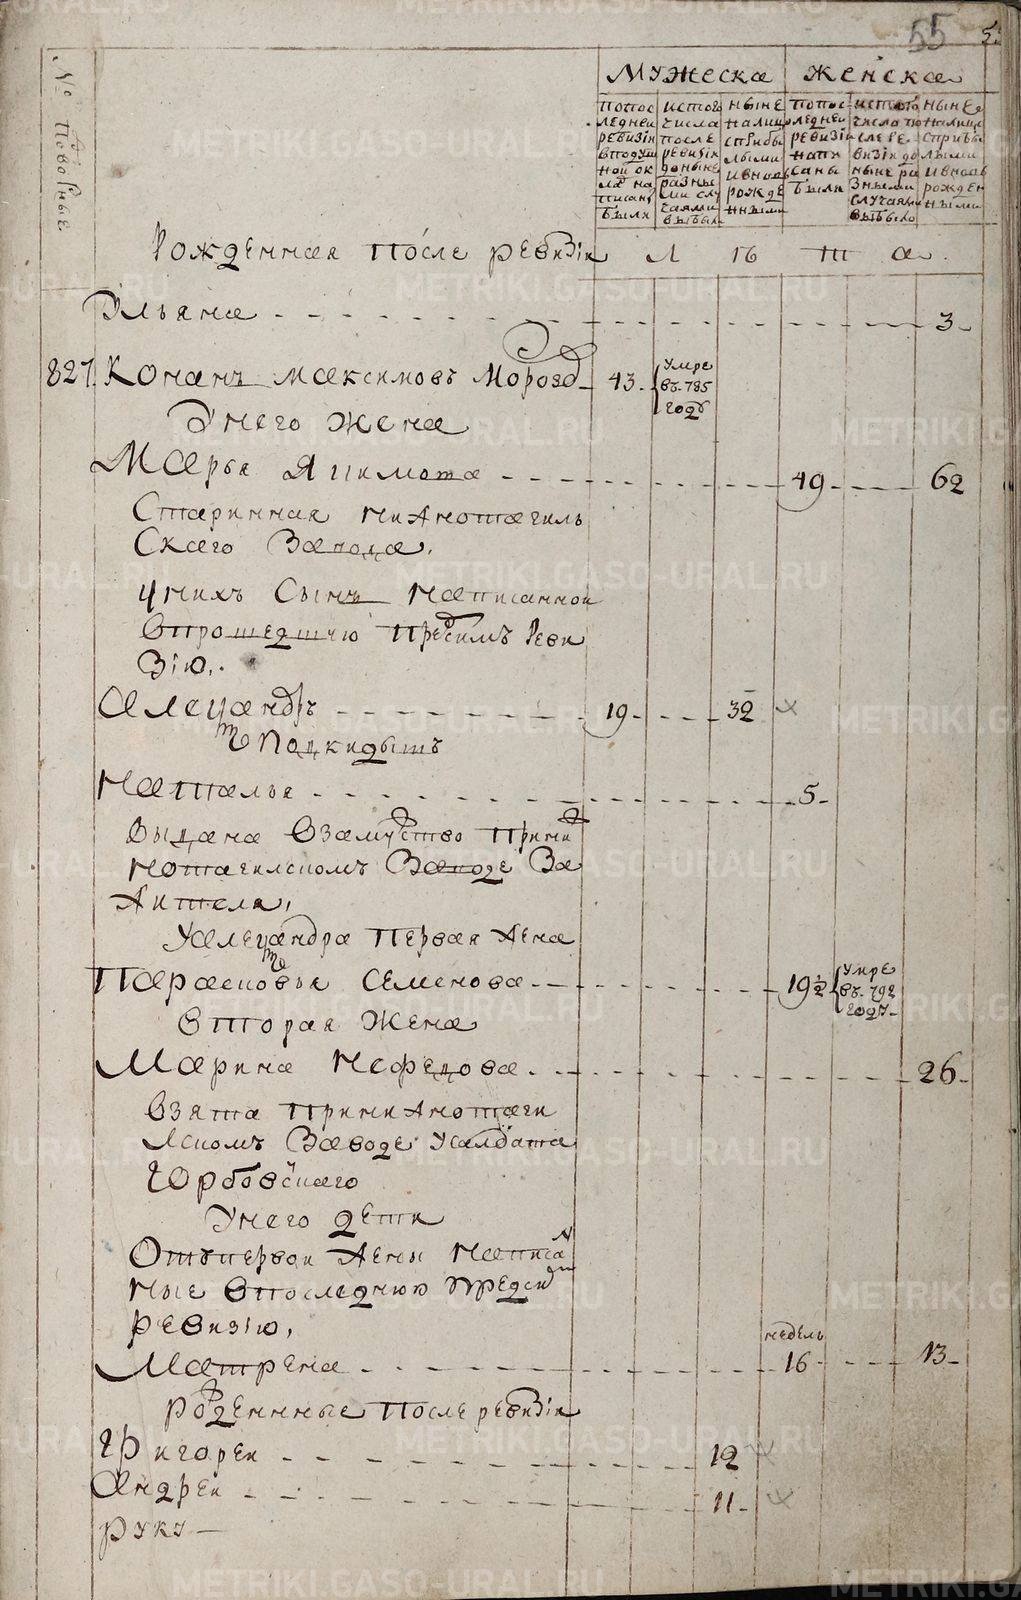 55
№ Подворные
Мужеска
Женска
попос
ледней
ревизіи
вподуш
ной ок
ладъ на
писанъ
были
истого
числа
после
ревизіи
доныне
разны
ми слу
чаями
выбыло
ныне
налицо
сприбы
лыми
ивновь
рожде
нными
попос
ледней
ревизіи
напи
саны
были
истого
числа по
сле ре
визіи до
ныне ра
зными
случаями
выбыло
ныне
налицо
сприбы
лыми
ивновь
рожден
ными
Рожденная после ревизіи
Л Ѣ Т а
Ульяна 3
827. Конанъ Максимовъ Морозо 43 Умре въ 785 годў
Унего жена
Марья Якимова 49 62
Старинная нижнотагиль
скаго завода.
Унихъ сынъ написанной
впрошедшую предсимъ реви
зію.
Алеѯандръ 19 32
Подкидышъ
Наталья 5
Выдана взамужство приниж
нотагилскомъ заводе за
жителя,
Уалеѯандра первая жена
Парасковья Семенова 19½ Умре въ 792 годў
Вторая жена
Марина Нефедова 26
Взята принижнотаги
лском заводе усалдата
Горбовскаго
Унего дети
Отъпервой жены написа
ные впоследнюю предсим
ревизію,
Матрена недель 16 13
рожденнные после ревизіи
Григорей 12
Андрей 11
руку